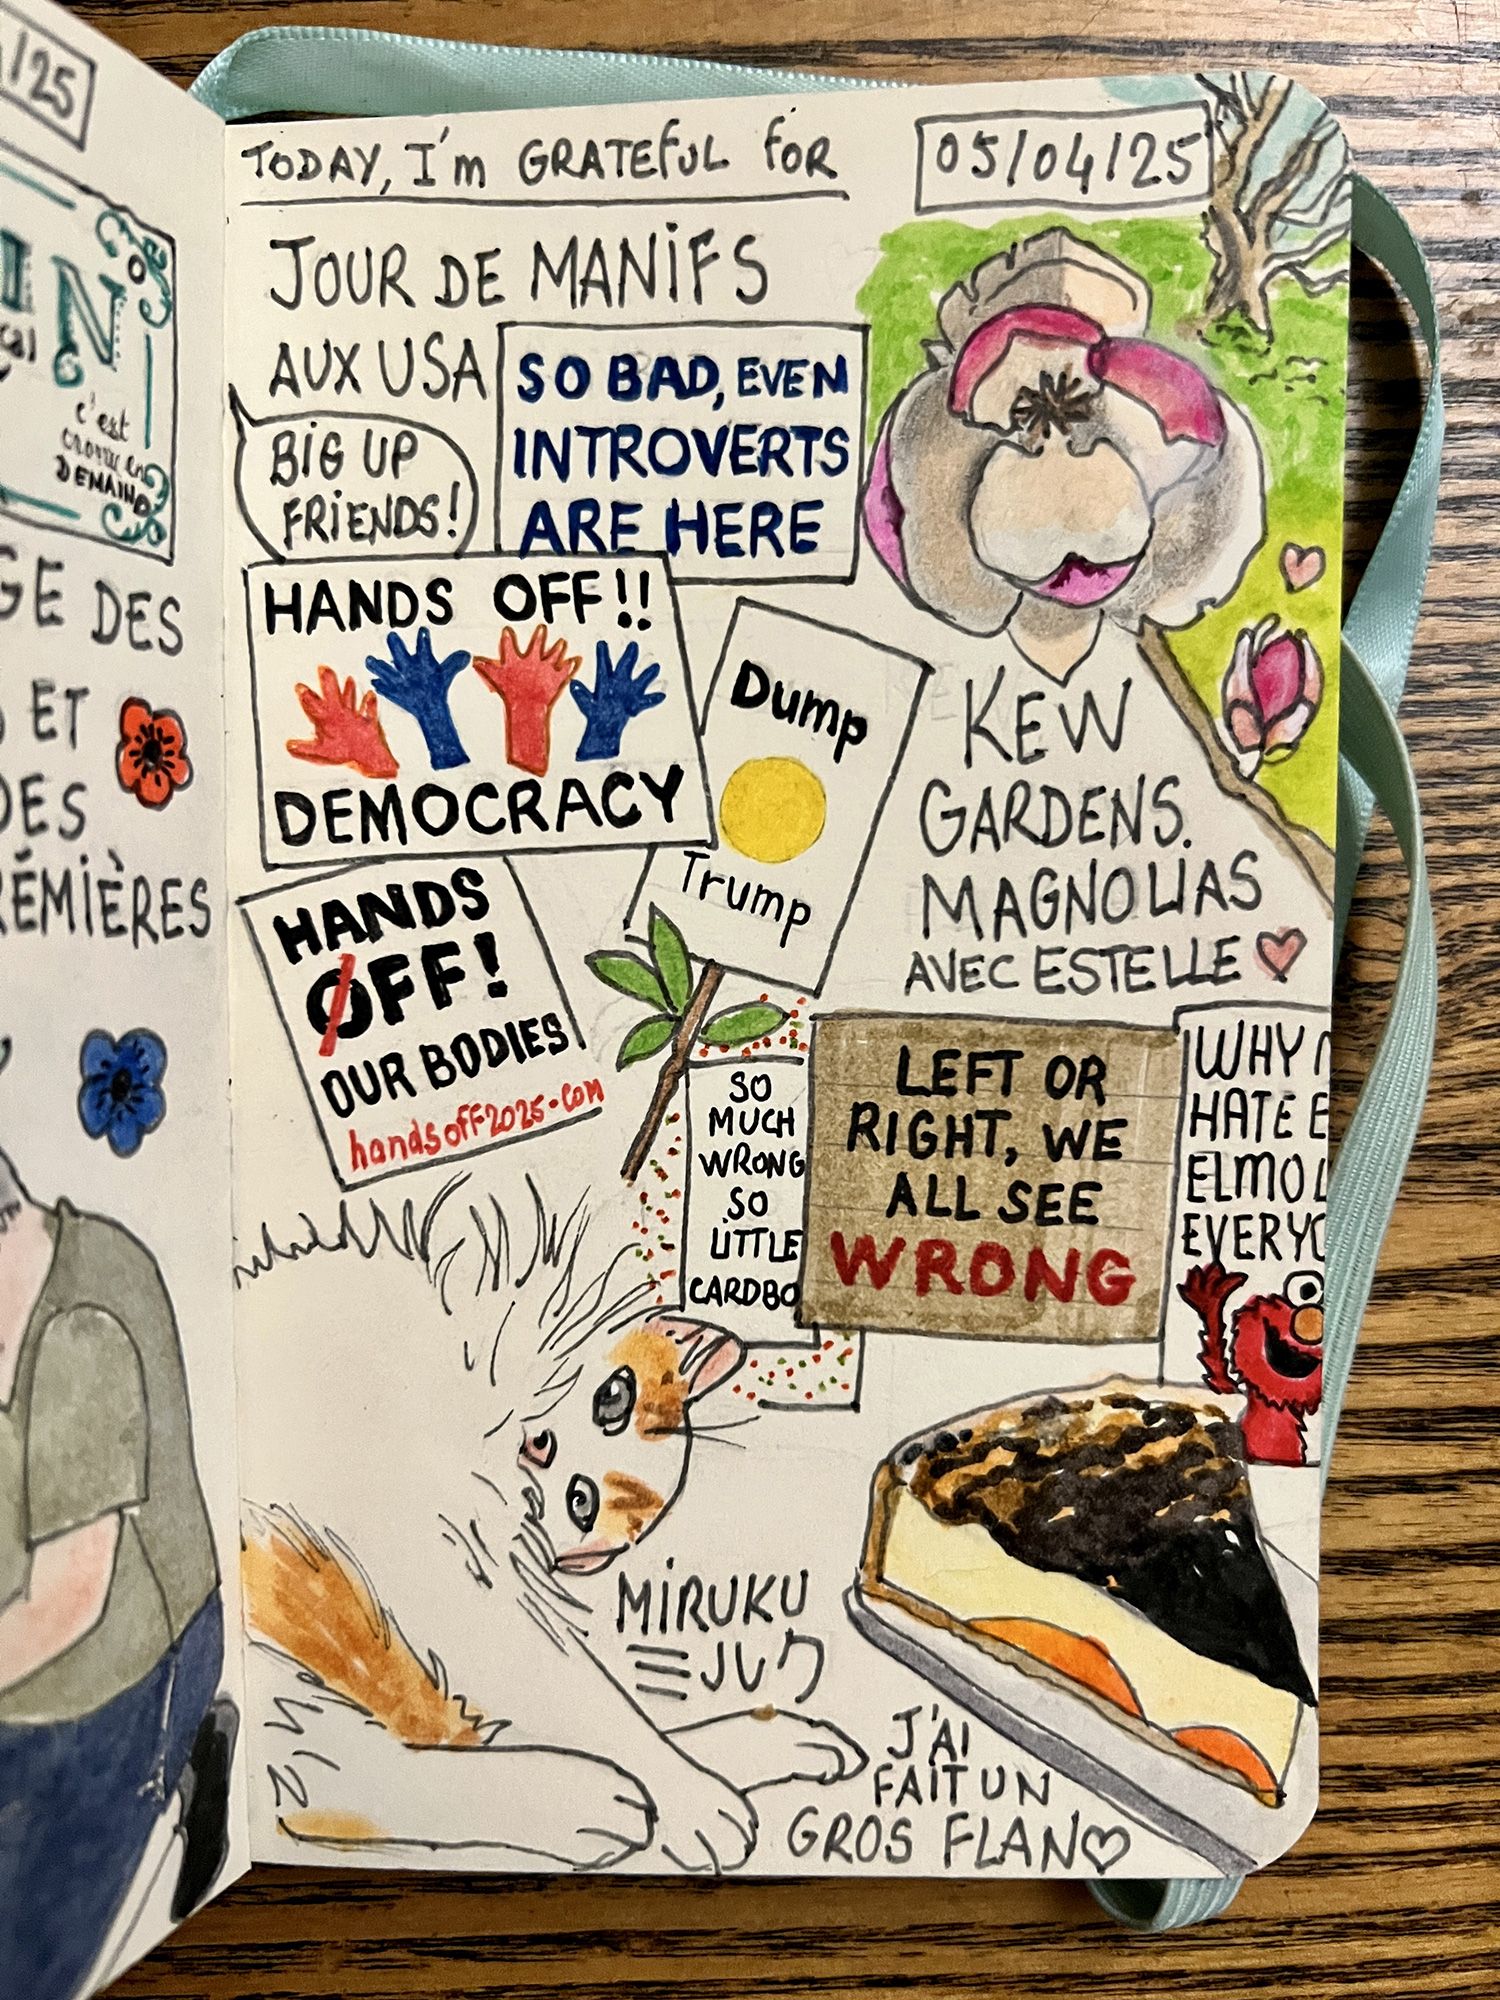 /25
N
c'est
DEMAIN
GE DES
ET
DES
RÉMIÈRES
TODAY, I'm GRATEFUL FOR
05/04/25
JOUR DE MANIFS
AUX USA
BIG UP
FRIENDS!
SO BAD, EVEN
INTROVERTS
ARE HERE
HANDS OFF!!
DEMOCRACY
Dump
Trump
HANDS
OFF!
OUR BODIES
handsoff2025.com
KEW
GARDENS.
MAGNOLIAS
AVEC ESTELLE
SO
MUCH
WRONG
SO
LITTLE
CARDBO
LEFT OR
RIGHT, WE
ALL SEE
WRONG
WHY
HATE E
ELMO L
EVERYO
MIRUKU
ミルク
J'AI
FAIT UN
GROS FLAN